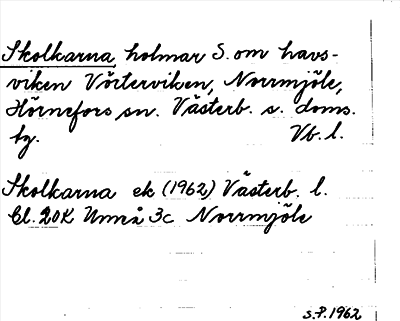 Skolkarna, holmar S. om havs-
viken Vörterviken, Norrmjöle,
Hörnefors sn. Västerb. s. doms.
bg. Vb. l.
Skolkarna ek (1962) Västerb. l.
Bl. 20K Umeå 3c Norrmjöle
S.P. 1962